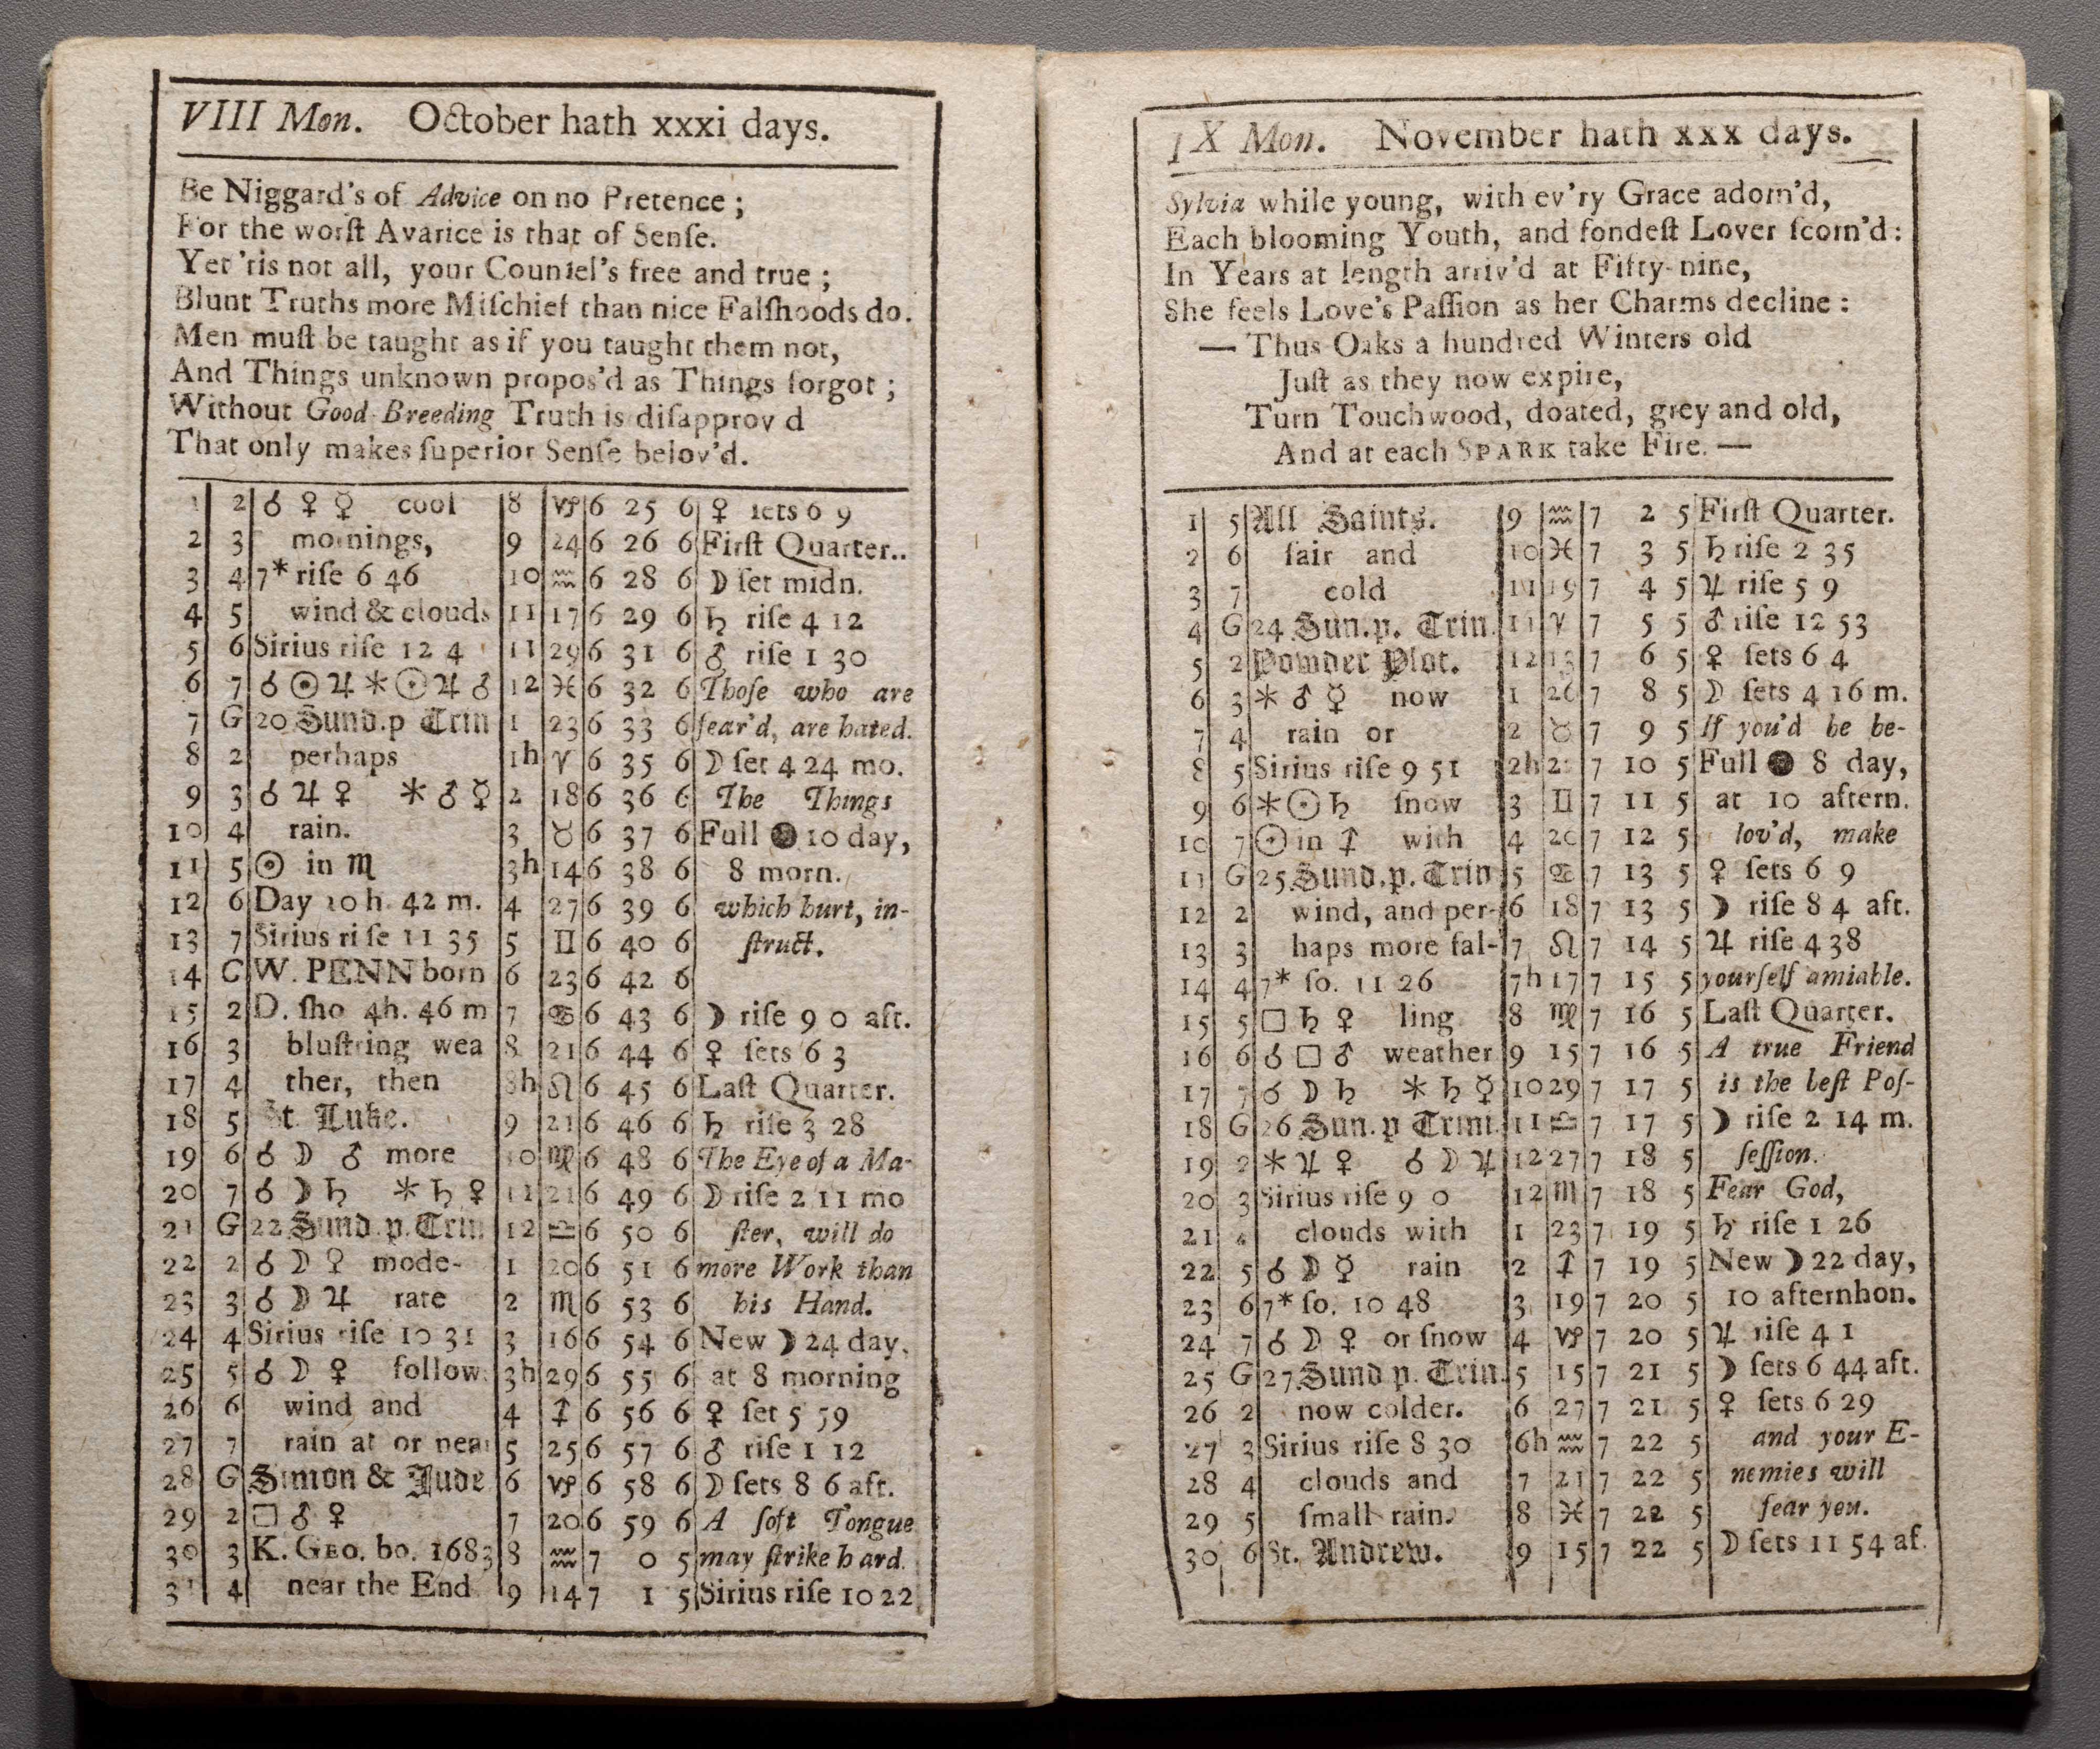 VIII Mon. October hath xxxi days.
Be Niggard's of Advice on no Pretence ;
For the worſt Avarice is that of Senſe.
Yet 'tis not all, your Counſel's free and true ;
Blunt Truths more Miſchief than nice Falſhoods do.
Men muſt be taught as if you taught them not,
And Things unknown propos'd as Things forgot ;
Without Good-Breeding Truth is diſapprov d
That only makes ſuperior Senſe belov'd.
1 2 ☌ ♀ ☿ cool 8 ♑ 6 25 6 ♀ ſets 6 9
2 3 mornings, 9 24 6 26 6 Firſt Quarter..
3 4 7* riſe 6 46 10 ♒ 6 28 6 ☽ ſet midn.
4 5 wind & clouds 11 17 6 29 6 ♄ riſe 4 12
5 6 Sirius riſe 12 4 11 29 6 31 6 ♂ riſe 1 30
6 7 ☌ ☉ ♃ * ☉ ♃ ♂ 12 ♓ 6 32 6 Thoſe who are
7 G 20 Sund.p Trin 1 23 6 33 6 fear'd, are hated.
8 2 perhaps 1h ♈ 6 35 6 ☽ ſet 4 24 mo.
9 3 ☌ ♃ ♀ * ♂ ☿ 2 18 6 36 6 The Things
10 4 rain. 3 ♉ 6 37 6 Full ● 10 day,
11 5 ☉ in ♏ 3h 14 6 38 6 8 morn.
12 6 Day 10 h. 42 m. 4 27 6 39 6 which hurt, in-
13 7 Sirius riſe 11 35 5 ♊ 6 40 6 ſtruct.
14 G W. PENN born 6 23 6 42 6
15 2 D. ſho 4h. 46 m 7 ♋ 6 43 6 ☽ riſe 9 0 aft.
16 3 bluſtring wea 8 21 6 44 6 ♀ ſets 6 3
17 4 ther, then 8h ♌ 6 45 6 Laſt Quarter.
18 5 St. Luke. 9 21 6 46 6 ♄ riſe 3 28
19 6 ☌ ☽ ♂ more 10 ♍ 6 48 6 The Eye of a Ma-
20 7 ☌ ☽ ♄ * ♄ ♀ 11 21 6 49 6 ☽ riſe 2 11 mo
21 G 22 Sund.p.Trin 12 ♎ 6 50 6 ſter, will do
22 2 ☌ ☽ ♀ mode- 1 20 6 51 6 more Work than
23 3 ☌ ☽ ♃ rate 2 ♏ 6 53 6 his Hand.
24 4 Sirius riſe 10 31 3 16 6 54 6 New ☽ 24 day,
25 5 ☌ ☽ ♀ follow 3h 29 6 55 6 at 8 morning
26 6 wind and 4 ♐ 6 56 6 ♀ ſet 5 59
27 7 rain at or near 5 25 6 57 6 ♂ riſe 1 12
28 G Simon & Jude 6 ♑ 6 58 6 ☽ ſets 8 6 aft.
29 2 □ ♂ ♀ 7 20 6 59 6 A ſoft Tongue
30 3 K. GEO. bo. 1683 8 ♒ 7 0 5 may ſtrike hard.
31 4 near the End 9 14 7 1 5 Sirius riſe 10 22
IX Mon. November hath xxx days.
Sylvia while young, with ev'ry Grace adorn'd,
Each blooming Youth, and fondeſt Lover ſcorn'd :
In Years at length arriv'd at Fifty-nine,
She feels Love's Paſſion as her Charms decline :
— Thus Oaks a hundred Winters old
Juſt as they now expire,
Turn Touchwood, doated, grey and old,
And at each SPARK take Fire. —
1 5 All Saints. 9 ♒ 7 2 5 Firſt Quarter.
2 6 fair and 10 ♓ 7 3 5 ♄ riſe 2 35
3 7 cold 11 19 7 4 5 ♃ riſe 5 9
4 G 24 Sun.p. Trin. 11 ♈ 7 5 5 ♂ riſe 12 53
5 2 Powder Plot. 12 13 7 6 5 ♀ ſets 6 4
6 3 * ♂ ☿ now 1 26 7 8 5 ☽ ſets 4 16 m.
7 4 rain or 2 ♉ 7 9 5 If you'd be be-
8 5 Sirius riſe 9 51 2h 7 10 5 Full ● 8 day,
9 6 * ☉ ♄ ſnow 3 ♊ 7 11 5 at 10 aftern.
10 7 ☉ in ♐ with 4 20 7 12 5 lov'd, make
11 G 25.Sund.p.Trin 5 ♋ 7 13 5 ♀ ſets 6 9
12 2 wind, and per- 6 18 7 13 5 ☽ riſe 8 4 aft.
13 3 haps more fal- 7 ♌ 7 14 5 ♃ riſe 4 38
14 4 7* ſo. 11 26 7h 17 7 15 5 yourſelf amiable.
15 5 □ ♄ ♀ ling 8 ♍ 7 16 5 Laſt Quarter.
16 6 ☌ □ ♂ weather 9 15 7 16 5 A true Friend
17 7 ☌ ☽ ♄ * ♄ ☿ 10 29 7 17 5 is the beſt Poſ-
18 G 26 Sun.p Trini. 11 ♎ 7 17 5 ☽ riſe 2 14 m.
19 2 * ♃ ♀ ☌ ☽ ♃ 12 27 7 18 5 ſeſſion.
20 3 Sirius riſe 9 0 12 ♏ 7 18 5 Fear God,
21 4 clouds with 1 23 7 19 5 ♄ riſe 1 26
22 5 ☌ ☽ ☿ rain 2 ♐ 7 19 5 New ☽ 22 day,
23 6 7* ſo. 10 48 3 19 7 20 5 10 afternhon.
24 7 ☌ ☽ ♀ or ſnow 4 ♑ 7 20 5 ♃ riſe 4 1
25 G 27.Sund p. Trin. 5 15 7 21 5 ☽ ſets 6 44 aft.
26 2 now colder. 6 27 7 21 5 ♀ ſets 6 29
27 3 Sirius riſe 8 30 6h ♒ 7 22 5 and your E-
28 4 clouds and 7 21 7 22 5 nemies will
29 5 ſmall rain. 8 ♓ 7 22 5 fear you.
30 6 St. Andrew. 9 15 7 22 5 ☽ ſets 11 54 af.